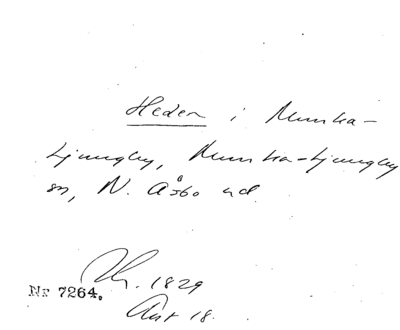 Heden i Munka-
Ljungby, Munka-Ljungby
sn, N. Åsbo hd.
Nr 7264.
1829
Akt 18.